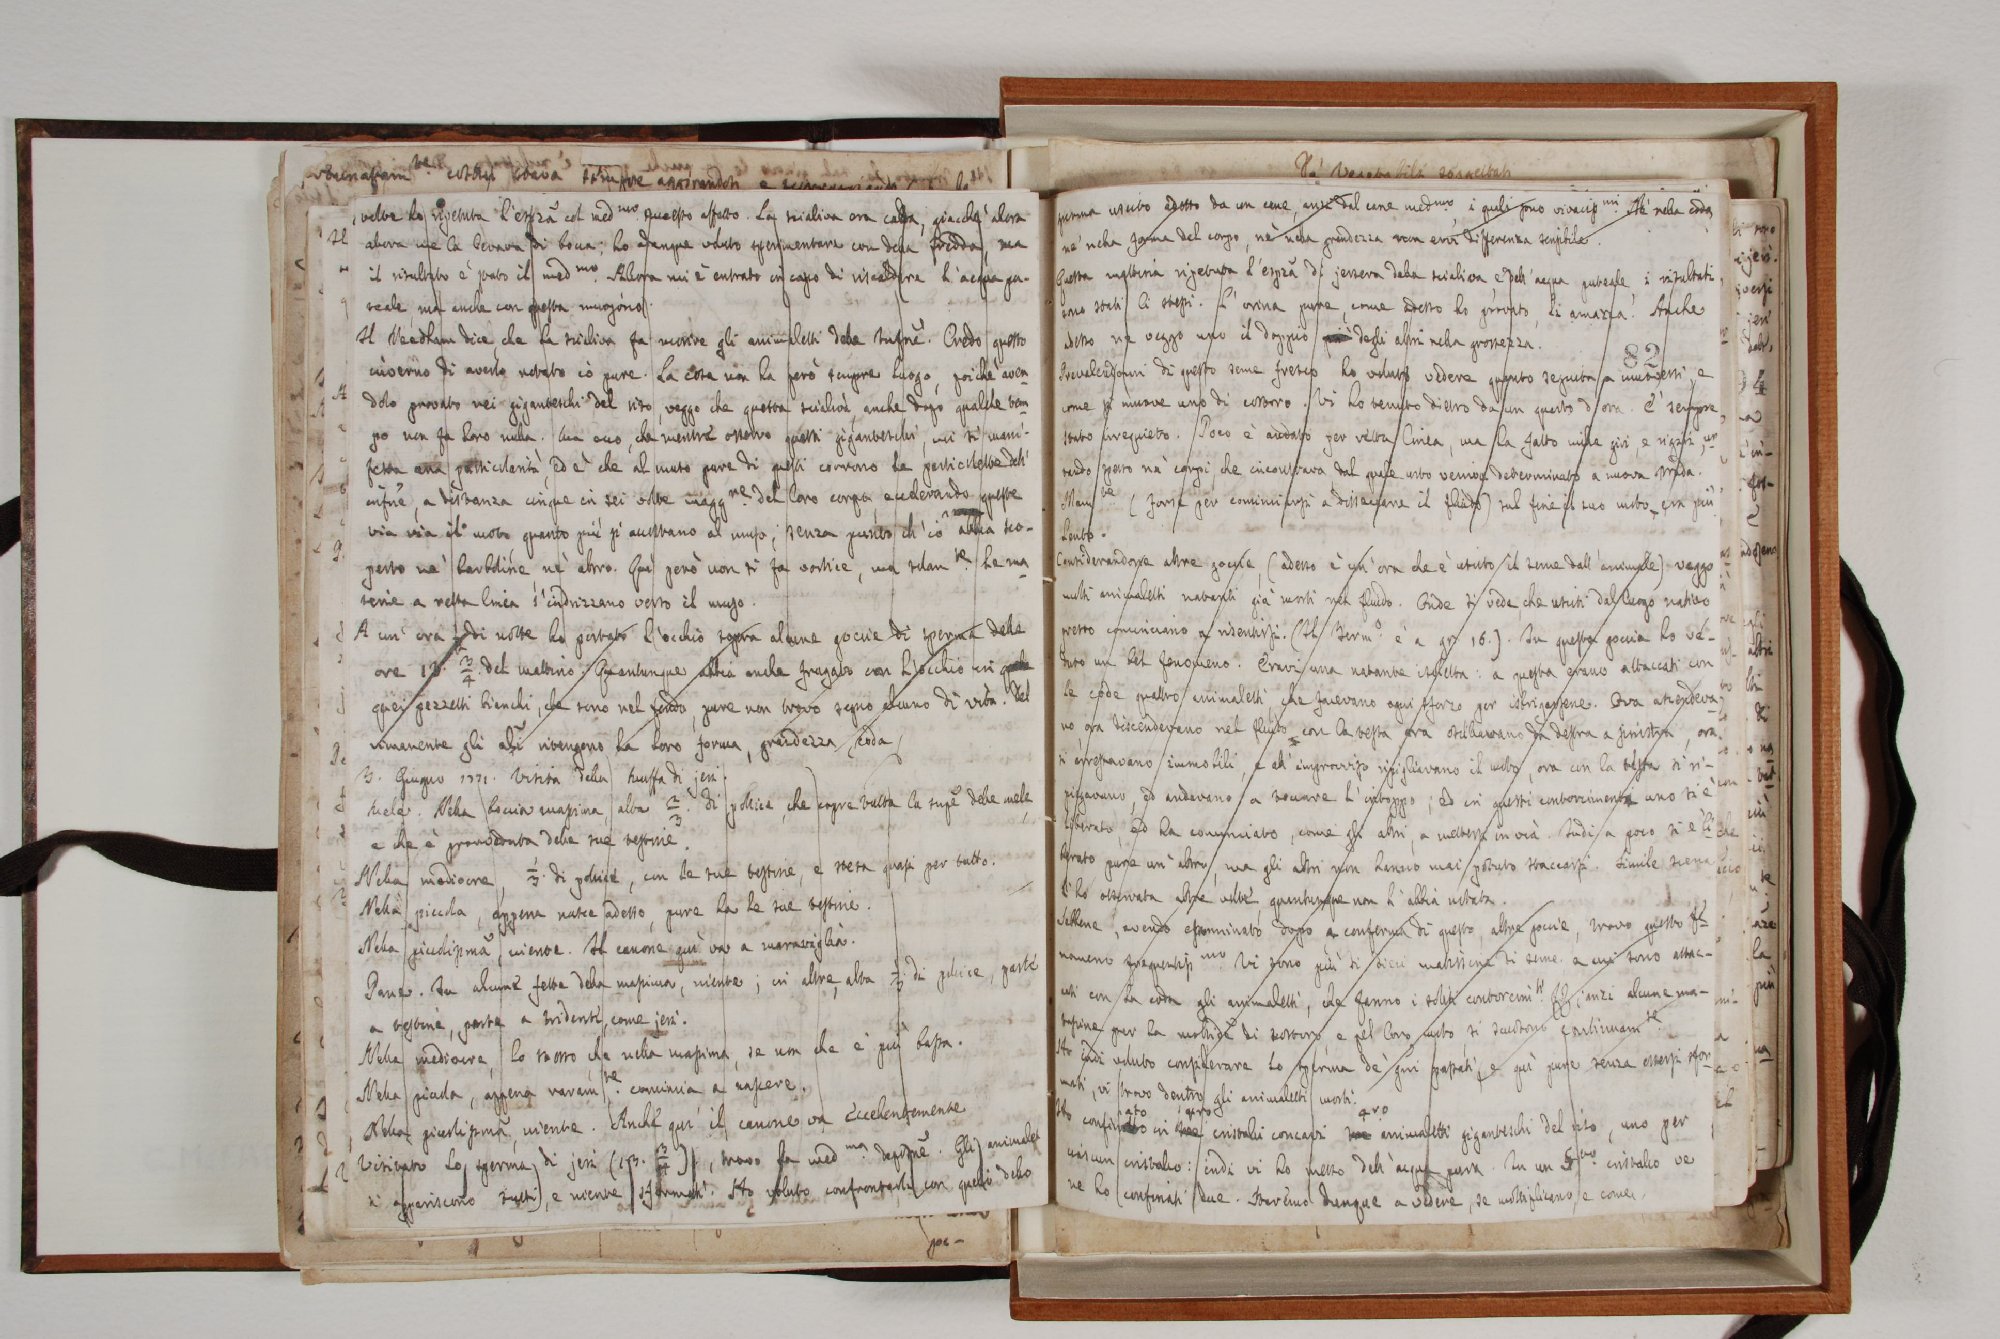 volte ho ripetuta l'esp.za col med.mo successo affatto. La scialiva era calda, giacchè allora
allora me la levava di bocca: ho dunque voluto sperimentare con della fredda, ma
il risultato è stato il med.mo. Allora mi è entrato in capo di riscaldare l'acqua pu-
teale ma anche con questa muojono.
Il Needham dice che la scialiva fa morire gli animaletti delle Infus.i. Credo questo
inverno di averlo notato io pure. La cosa non ha però sempre luogo, poichè aven-
dolo provato nei giganteschi del riso, veggo che questa scialiva anche dopo qualche tem-
po non fa loro nulla. Ma ecco, che mentre osservo questi giganteschi, mi si mani-
festa una particolarità, ed è che al muso pure di questi corrono le particelle dell'
infus.e, a distanza cinque in sei volte magg.re del loro corpo, accelerando queste
via via il moto quanto più si accostano al muso; senza punto ch'io abbia sco-
perto nè barboline, nè altro. Qui però non si fa vortice, ma solam.te le ma-
terie a retta linea s'indirizzano verso il muso.
A un' ora di notte ho portato l'occhio sopra alcune goccie di sperma delle
ore 13. 3/4 del mattino. Quantunque abbia anche frugato con l'occhio in
quei pezzetti bianchi, che sono nel fondo, pure non trovo segno alcuno di vita. Del
rimanente gli a.li ritengono la loro forma, grandezza, coda
3. Giugno 1771. Visita della muffa di jeri.
Mele. Nella boccia massima, alta 2/3 di pollice, che copre tutta la sup.e delle mele,
e che è proveduta delle sue testine.
Nella mediocre, 1/3 di pollice, con le sue testine, e stesa quasi per tutto.
Nella piccola, appena nasce adesso, pure ha le sue testine.
Nella piccolissima, niente. Il canone quì va a maraviglia.
Pane. In alcune fette della massima, niente; in altre, alta 1/3 di pollice, parte
a testine, parte a tridenti, come jeri.
Nella mediocre, lo stesso che nella massima, se non che è più bassa.
Nella piccola, appena raram.te comincia a nascere.
Nella piccolissima, niente. Anche qui il canone va eccellentemente
Visitato lo sperma di jeri (13. 3/4), trovo la med.ma Gli animaletti
si appariscono tutti, e niente sformati. Ho voluto confrontarli con quelli dello
sperma uscito adesso da un cane, anzi dal cane med.mo i quali sono vivaciss.mi Nè nella coda,
nè nella forma del corpo, nè nella grandezza non evvi differenza sensibile.
Questa mattina ripetuta l'esp.za di jersera della scialiva, e dell'acqua puteale i risultati
sono stati li stessi. L'orina pure, come adesso ho provato, li amazza. Anche
adesso ne veggo uno il doppio degli altri nella grossezza.
82
Prevalendomi di questo seme fresco ho voluto vedere quanto seguita a muoversi, e
come si muove uno di costoro. Vi ho tenuto dietro da un quarto d'ora. È sempre
stato irrequieto. Poco è andato per retta linea, ma ha fatto mille giri, e rigiri, ur-
tando spesso ne' corpi, che incontrava dal quale urto veniva determinato a nuova strada.
(forse per cominciarsi a dissecare il fluido) sul fine il suo moto era più
lento.
Considerandone altre goccie, (adesso è un'ora che è uscito il seme dall'animale) veggo
molti animaletti natanti già morti nel fluido. Onde si vede, che usciti dal luogo nativo
presto cominciano a risentirsi. (Il Term.o è a gr. 16.). In questa goccia ho ve-
duto un bel fenomeno. Eravi una natante isoletta: a questa erano attaccati con
le code quattro animaletti che facevano ogni sforzo per istrigarsene. Ora ascendeva-
no ora discendevano nel fluido, con la testa ora oscillavano da destra a sinistra, ora
si arrestavano immobili, e all'improvviso ripigliavano il moto, ora con la testa si ri-
piegavano, ed andavano a toccare l'intoppo; ed in questi contorcimenti uno si è
liberato, ed ha cominciato, come gli altri, a mettersi in via. Indi a poco si è li-
berato pure un'altro, ma gli altri non hanno mai potuto staccarsi. Simile scena
l'ho osservata altre volte, quantunque non l'abbia notata.
Sebbene, avendo esaminato dopo a conferma di questo, altre goccie, trovo questo fe-
nomeno frequentiss.mo. Vi sono più di dieci matassine di seme a cui sono attac-
cati con la coda gli animaletti, che fanno i soliti contorcim.ti. Ed anzi alcune ma-
tassine per la moltitud.e di costoro, e pel loro moto, si scuotono continuam.te.
Ho indi voluto considerare lo sperma de' giorni passati, e quì pure senza essersi sfor-
mati, vi trovo dentro gli animaletti morti.
Ho confinato in quattro cristalli concavi 4.ro animaletti giganteschi del riso, uno per
ciascun cristallo: indi vi ho messo dell'acqua pura. In un 5.to cristallo ve
ne ho confinati due. Staremo dunque a vedere, se moltiplicano, e come.